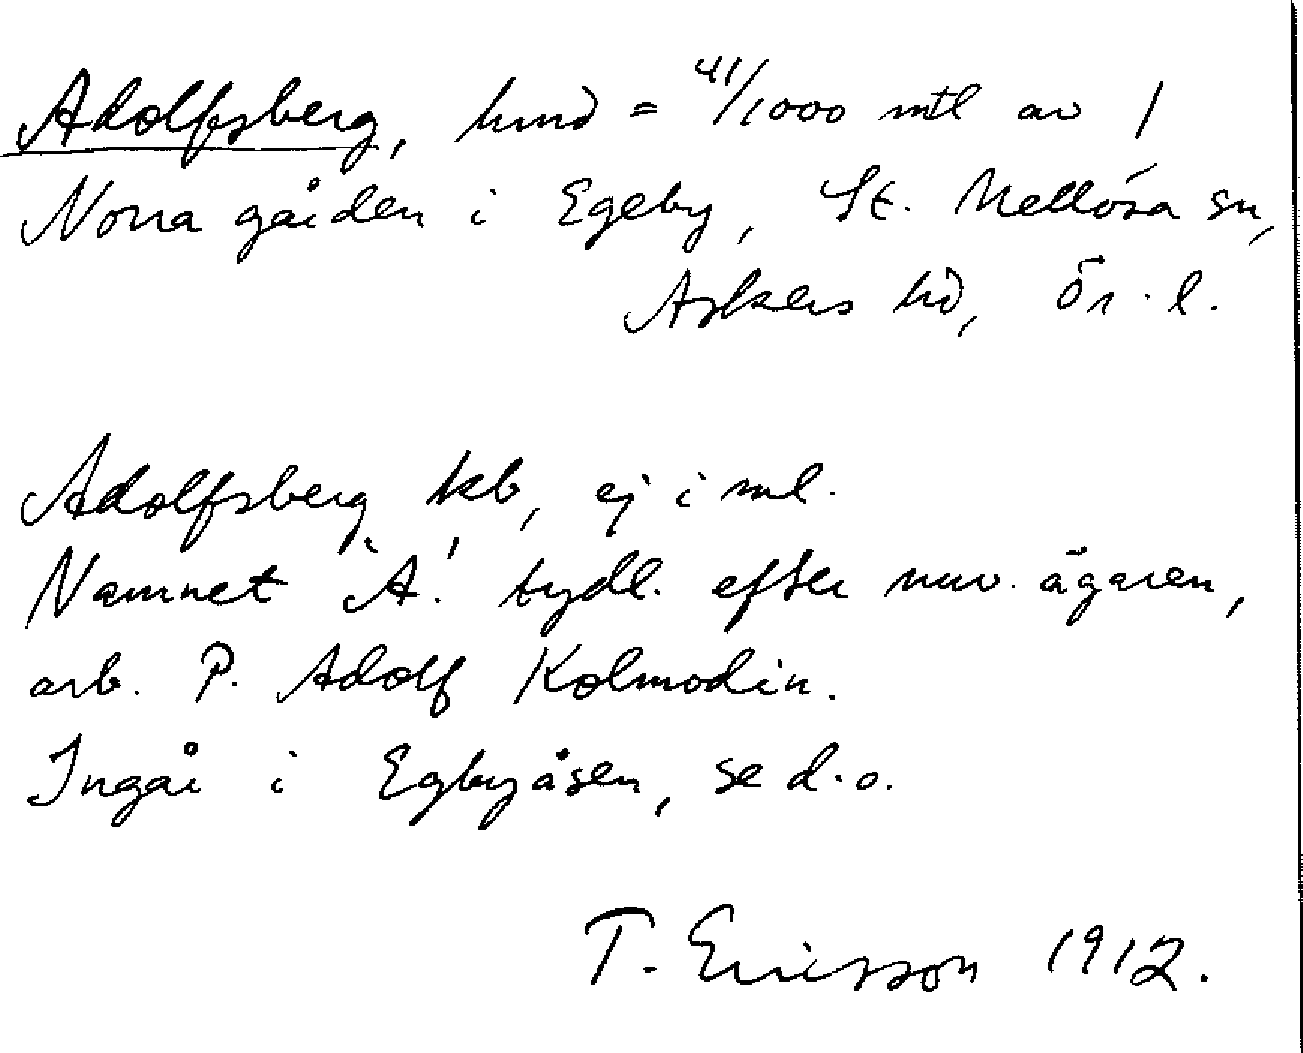 Adolfsberg, hmd = 41/1000 mtl av 1
Norra gården i Egeby, St. Mellösa sn,
Askers hd, Ör. l.
Adolfsberg kb, ej i ml.
Namnet 'A.' tydl. efter nuv. ägaren,
arb. P. Adolf Kolmodin.
Ingår i Egbyåsen, se d.o.
T. Ericsson 1912.